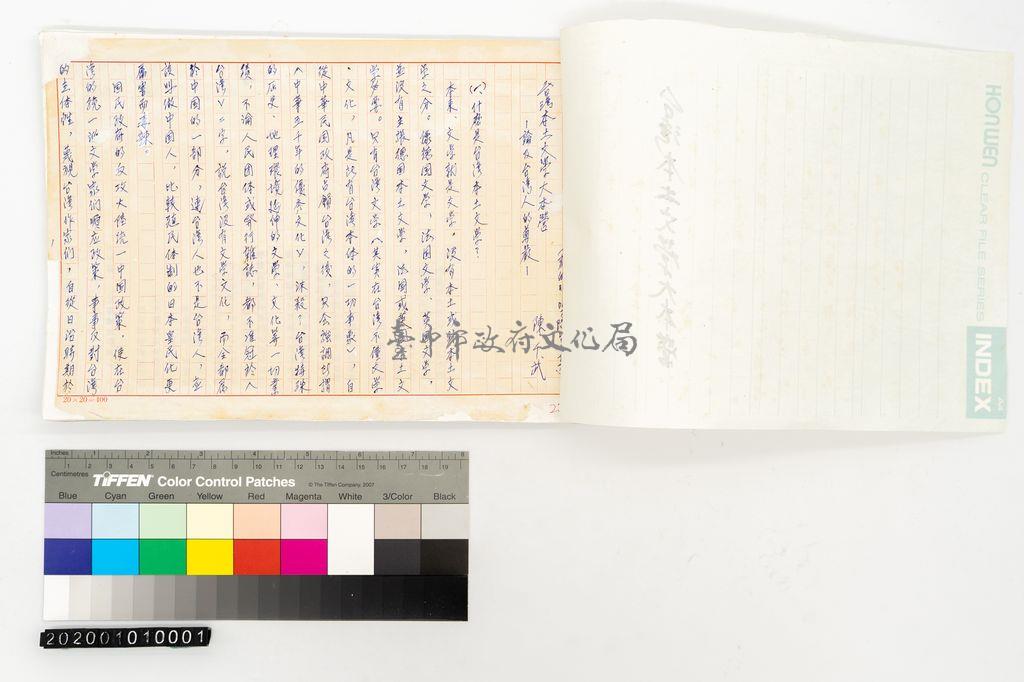 台灣本土文學大本營
—論及台灣人的尊嚴—
陳千武
(一)什麼是台灣本土文學?
本來,文學就是文學,沒有本土或非本土文
學之分。像德國文學,法國文學、英國文學,
並沒有主張德國本土文學,法國或英國本土文
學必要。只有台灣文學(其實在台灣不僅文學
、文化,凡是缺有台灣本体的一切事象),自
從中華民國政府占領台灣之後,只會強調所謂
〈中華五千年的優秀文化〉,沫殺了台灣特殊
的历史、地理環境延伸的文學、文化等一切業
績,不論人民团体或發行雜誌,都不准冠於〈
台灣〉二字,說台灣沒有文學文化,而全部屬
於中国的一部分,連台灣人也不是台灣人,应
該叫做中国人,比較殖民体制的日本皇民化更
厲害而毒辣。
國民政府的反攻大陸統一中国政策,使在台
灣的統一派文學家们順应政策,事事反對台灣
的主体性,蔑視台灣作家們,自從日治時期於
20×20=400
台灣本土文學大本營
HONWEN CLEAR FILE SERIES
INDEX
A4
臺中市政府文化局
Inches
Centimetres
TIFFEN Color Control Patches
© The Tiffen Company, 2007
Blue Cyan Green Yellow Red Magenta White 3/Color Black
202001010001